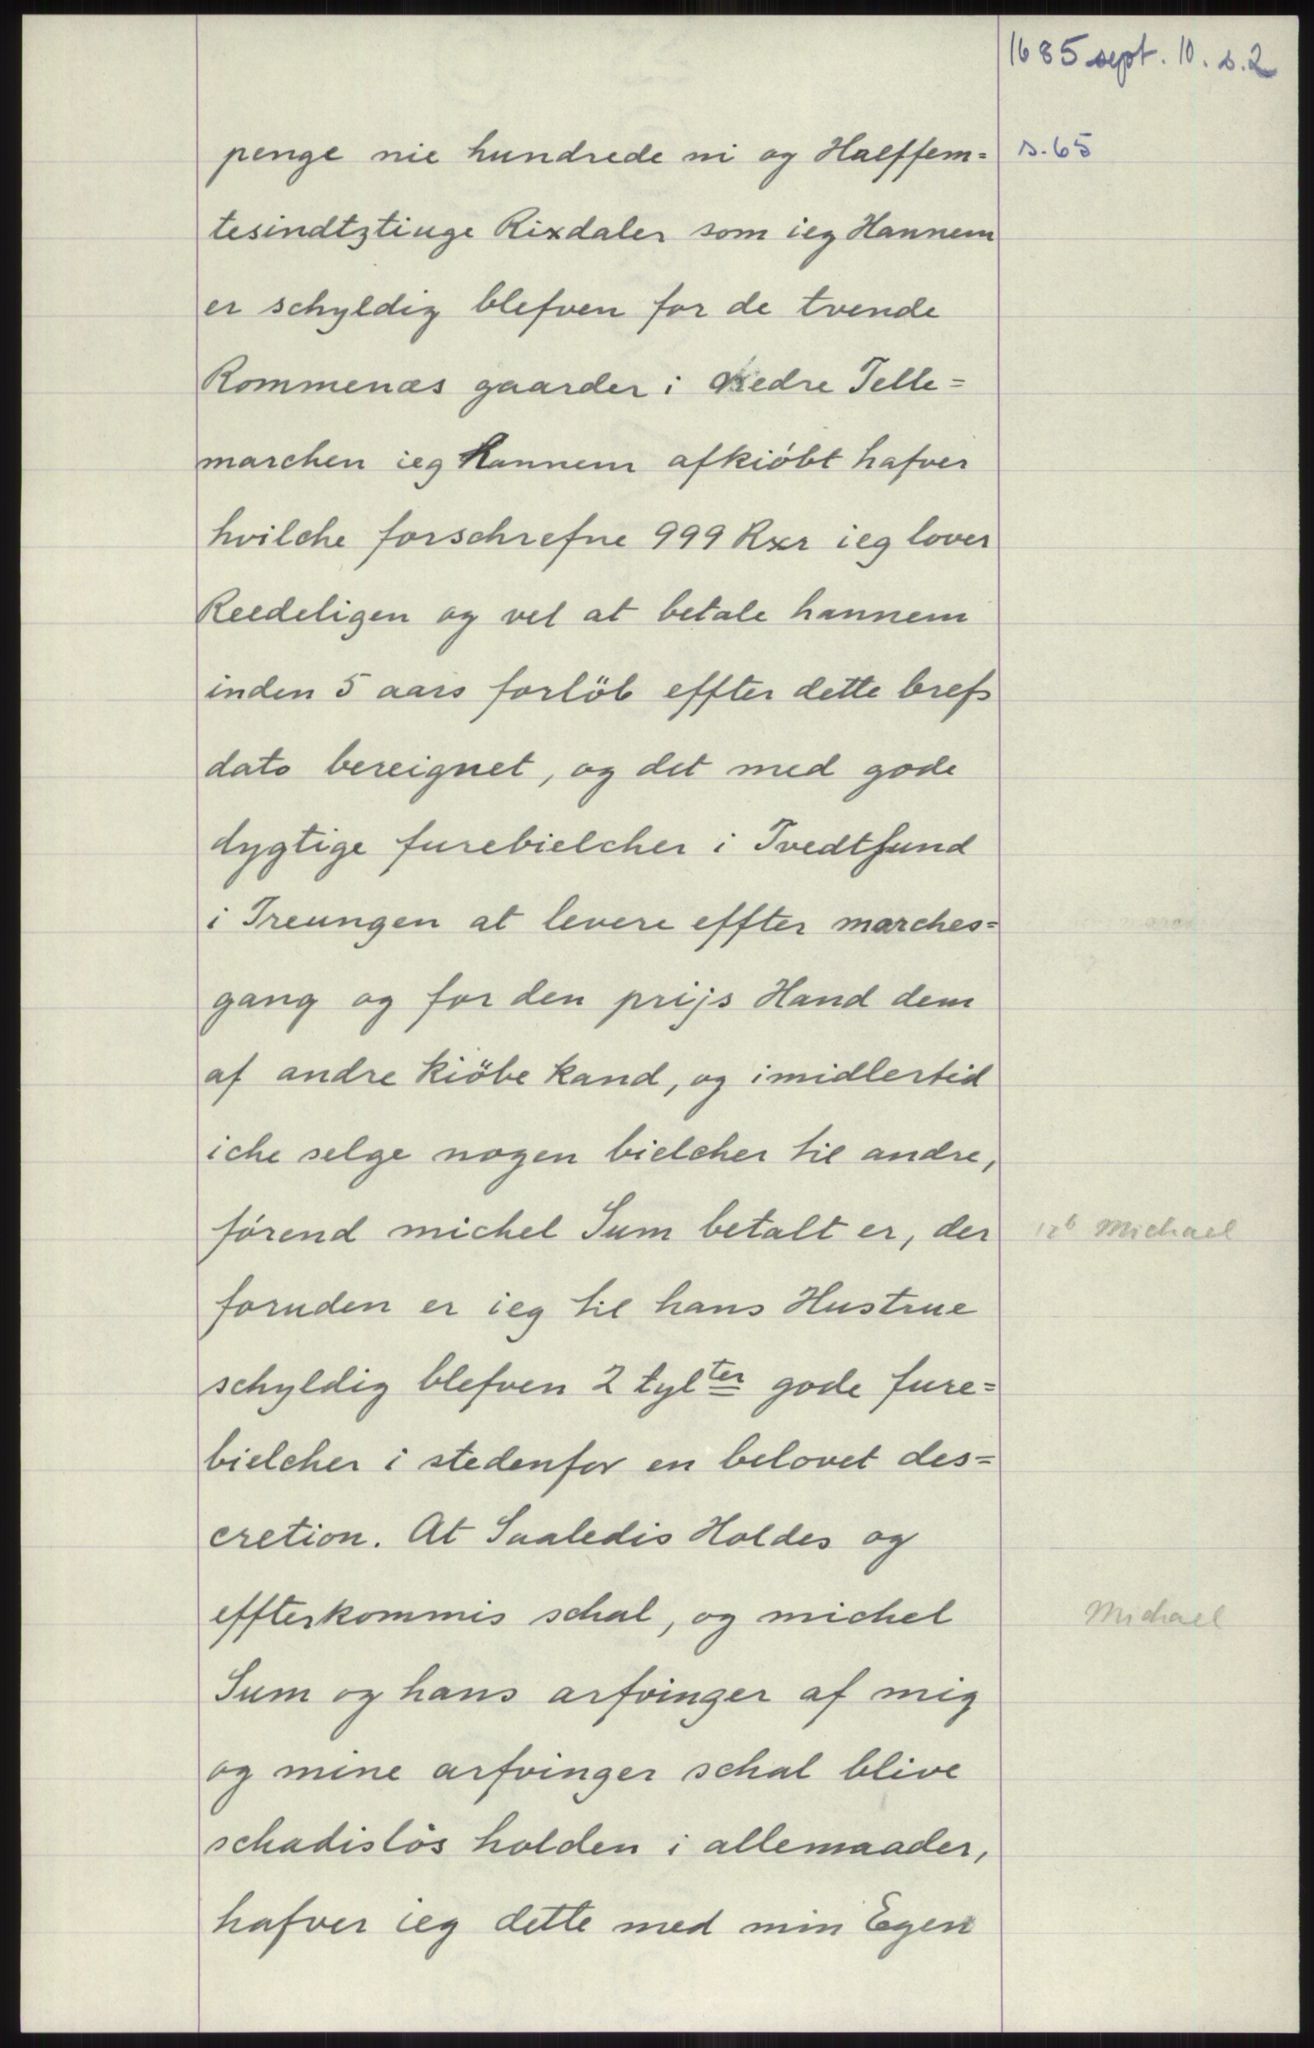 1685 sept. 10. s.2
penge nie hundrede ni og Halffem= s.65
tesindtztiuge Rixdaler som ieg Hannem
er schyldig blefven for de tvende
Rommenæs gaarder i Nedre Telle=
marchen ieg Hannem afkiöbt hafver
hvilche forschrefne 999 Rxr ieg lover
Reedeligen og vel at betale hannem
inden 5 aars forlöb effter dette brefs
dato bereignet, og det med gode
dygtige furebielcher i Tvedtsund
i Treungen at levere effter marches=
gang og for den prijs Hand dem
af andre kiöbe kand, og imidlertid
iche selge nogen bielcher til andre,
förend michel Sum betalt er, der Michael
foruden er ieg til hans Hustrue
schyldig blefven 2 tylter gode fure=
bielcher i stedenfor en belovet des=
cretion. At Saaledis Holdes og
effterkommis schal, og michel Michael
Sum og hans arfvinger af mig
og mine arfvinger schal blive
schadislös holden i allemaader,
hafver ieg dette med min Egen